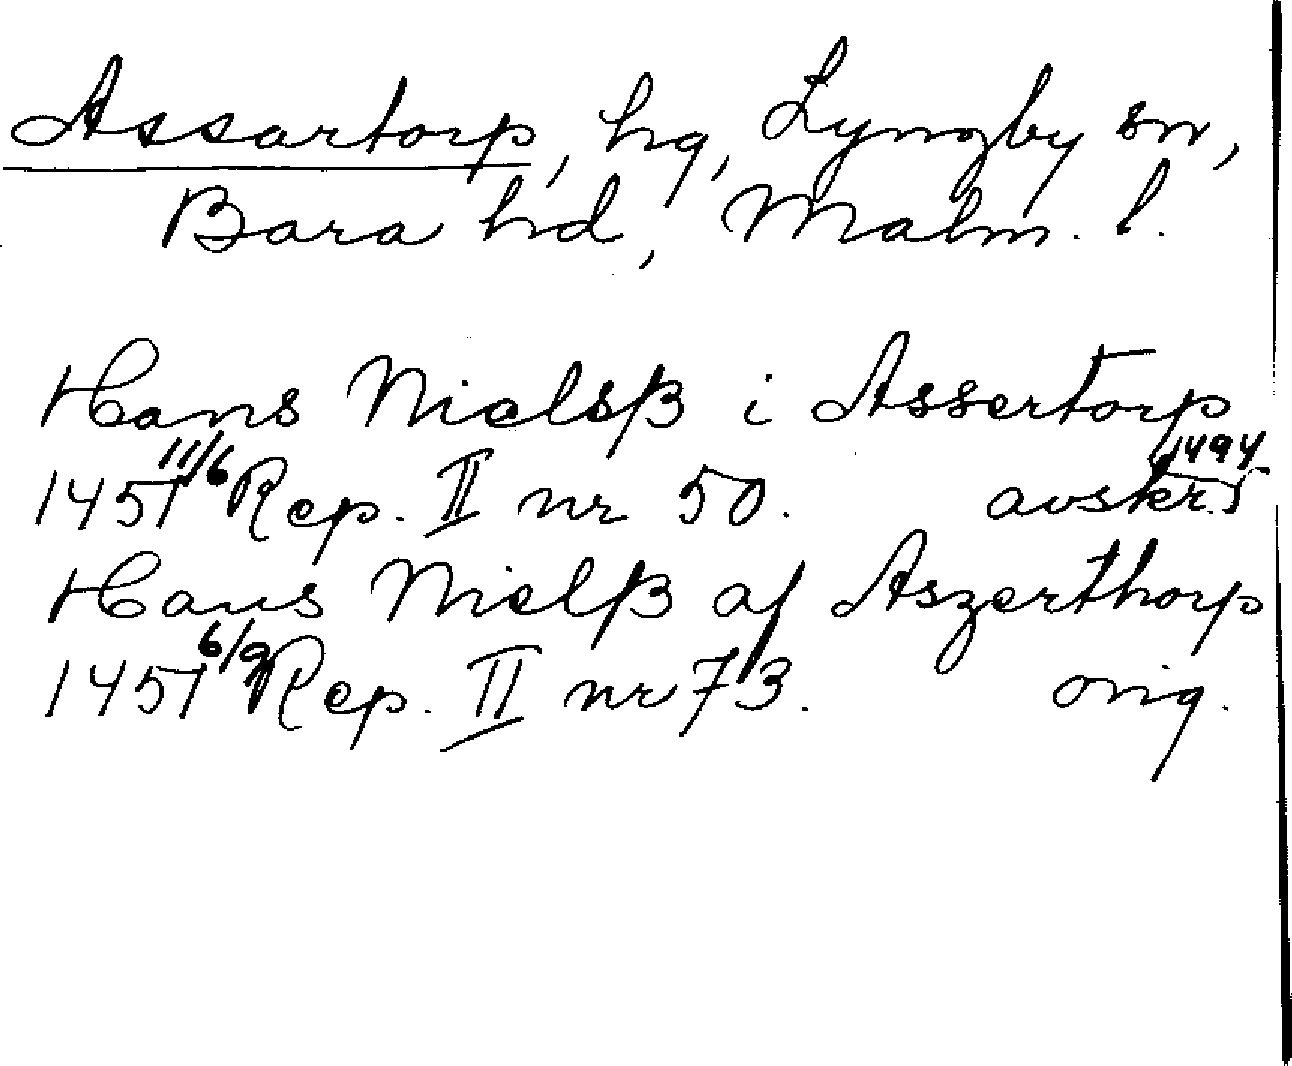 Assartorp, hg, Lyngby sn,
Bara hd, Malm. l.
Hans Nielsß i Assertorp
1451 11/6 Rep. II nr 50. avskr. 1494
Hans Nielß af Aszerthorp
1451 6/9 Rep. II nr 73. orig.